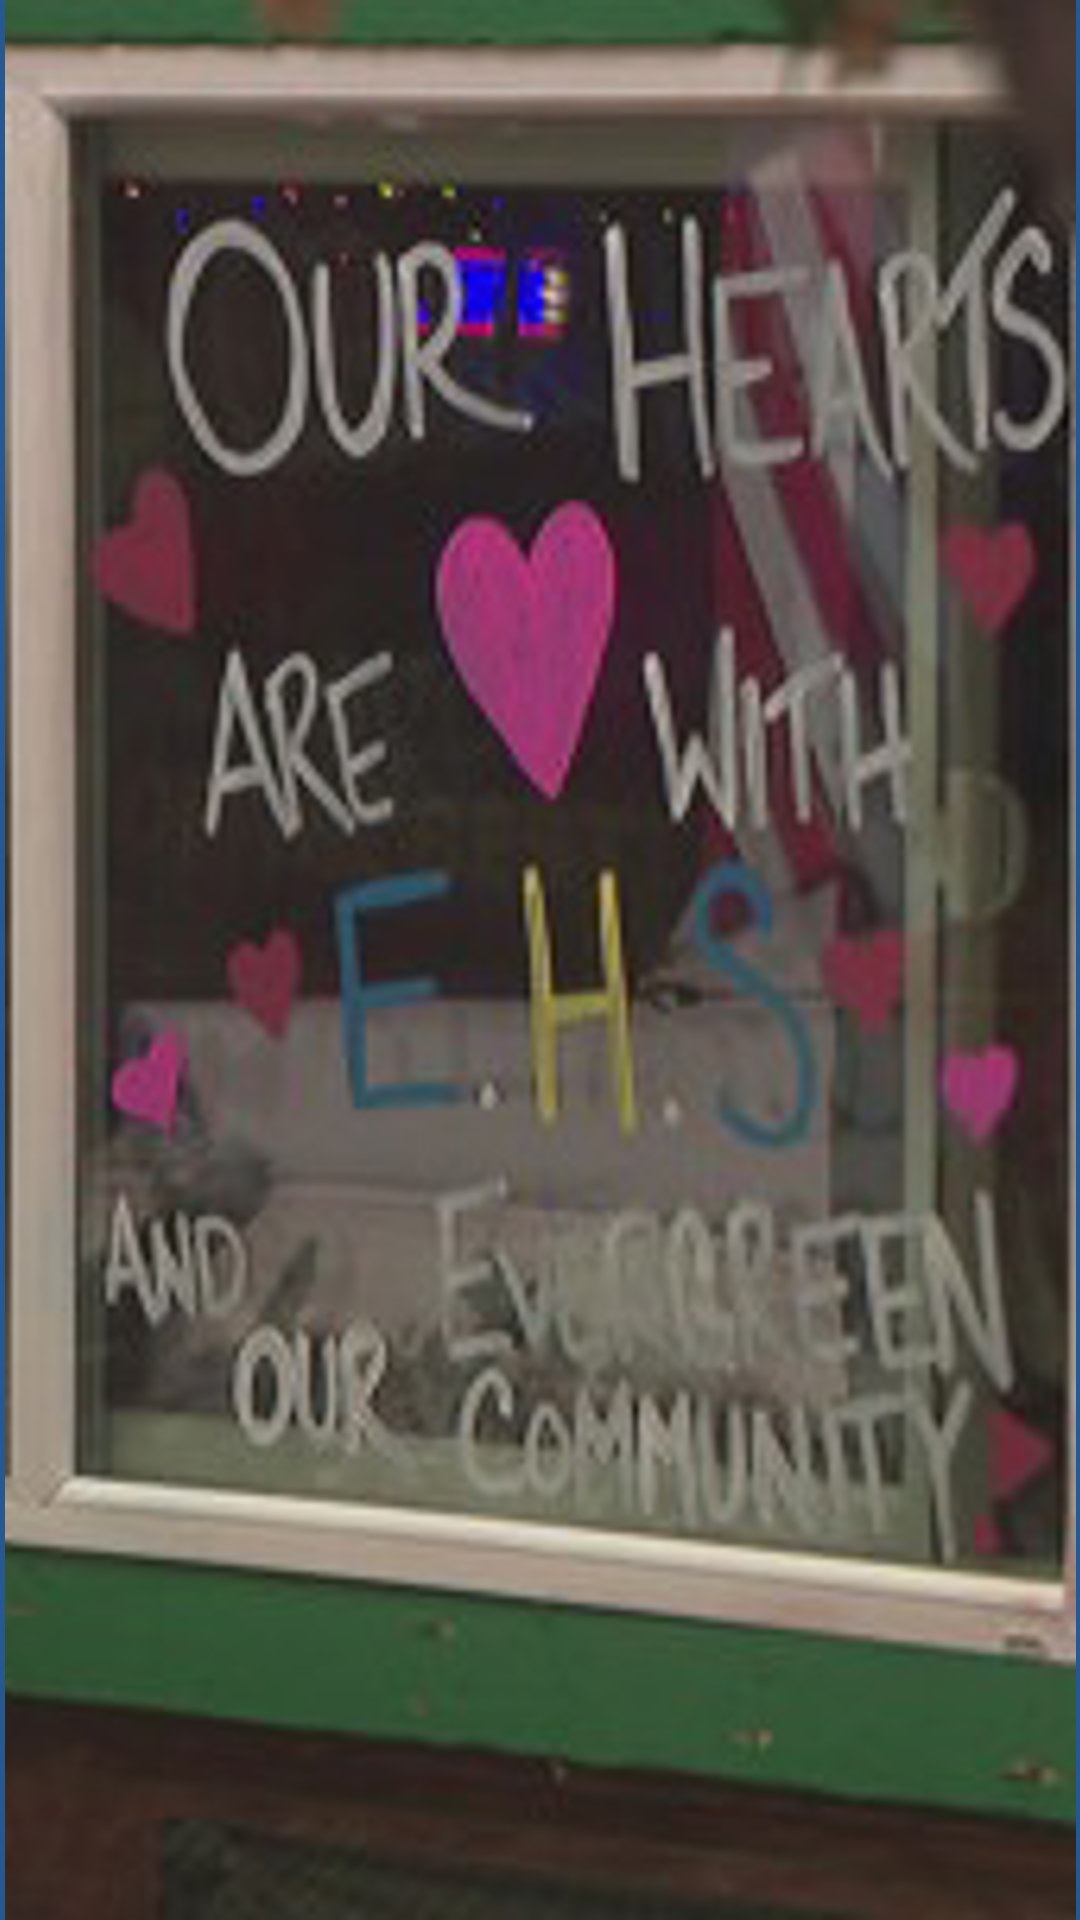 OUR HEARTS
ARE WITH
E.H.S
AND EVERGREEN
OUR COMMUNITY